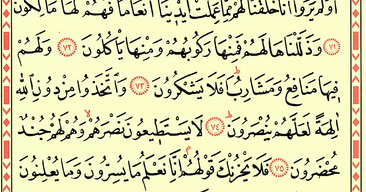 أَوَلَمْ يَرَوْا أَنَّا خَلَقْنَا لَهُم مِّمَّا عَمِلَتْ أَيْدِينَا أَنْعَامًا فَهُمْ لَهَا مَالِكُونَ
﴿٧١﴾ وَذَلَّلْنَاهَا لَهُمْ فَمِنْهَا رَكُوبُهُمْ وَمِنْهَا يَأْكُلُونَ ﴿٧٢﴾ وَلَهُمْ
فِيهَا مَنَافِعُ وَمَشَارِبُ أَفَلَا يَشْكُرُونَ ﴿٧٣﴾ وَاتَّخَذُوا مِن دُونِ اللَّهِ
آلِهَةً لَّعَلَّهُمْ يُنصَرُونَ ﴿٧٤﴾ لَا يَسْتَطِيعُونَ نَصْرَهُمْ وَهُمْ لَهُمْ جُندٌ
مُّحْضَرُونَ ﴿٧٥﴾ فَلَا يَحْزُنكَ قَوْلُهُمْ إِنَّا نَعْلَمُ مَا يُسِرُّونَ وَمَا يُعْلِنُونَ